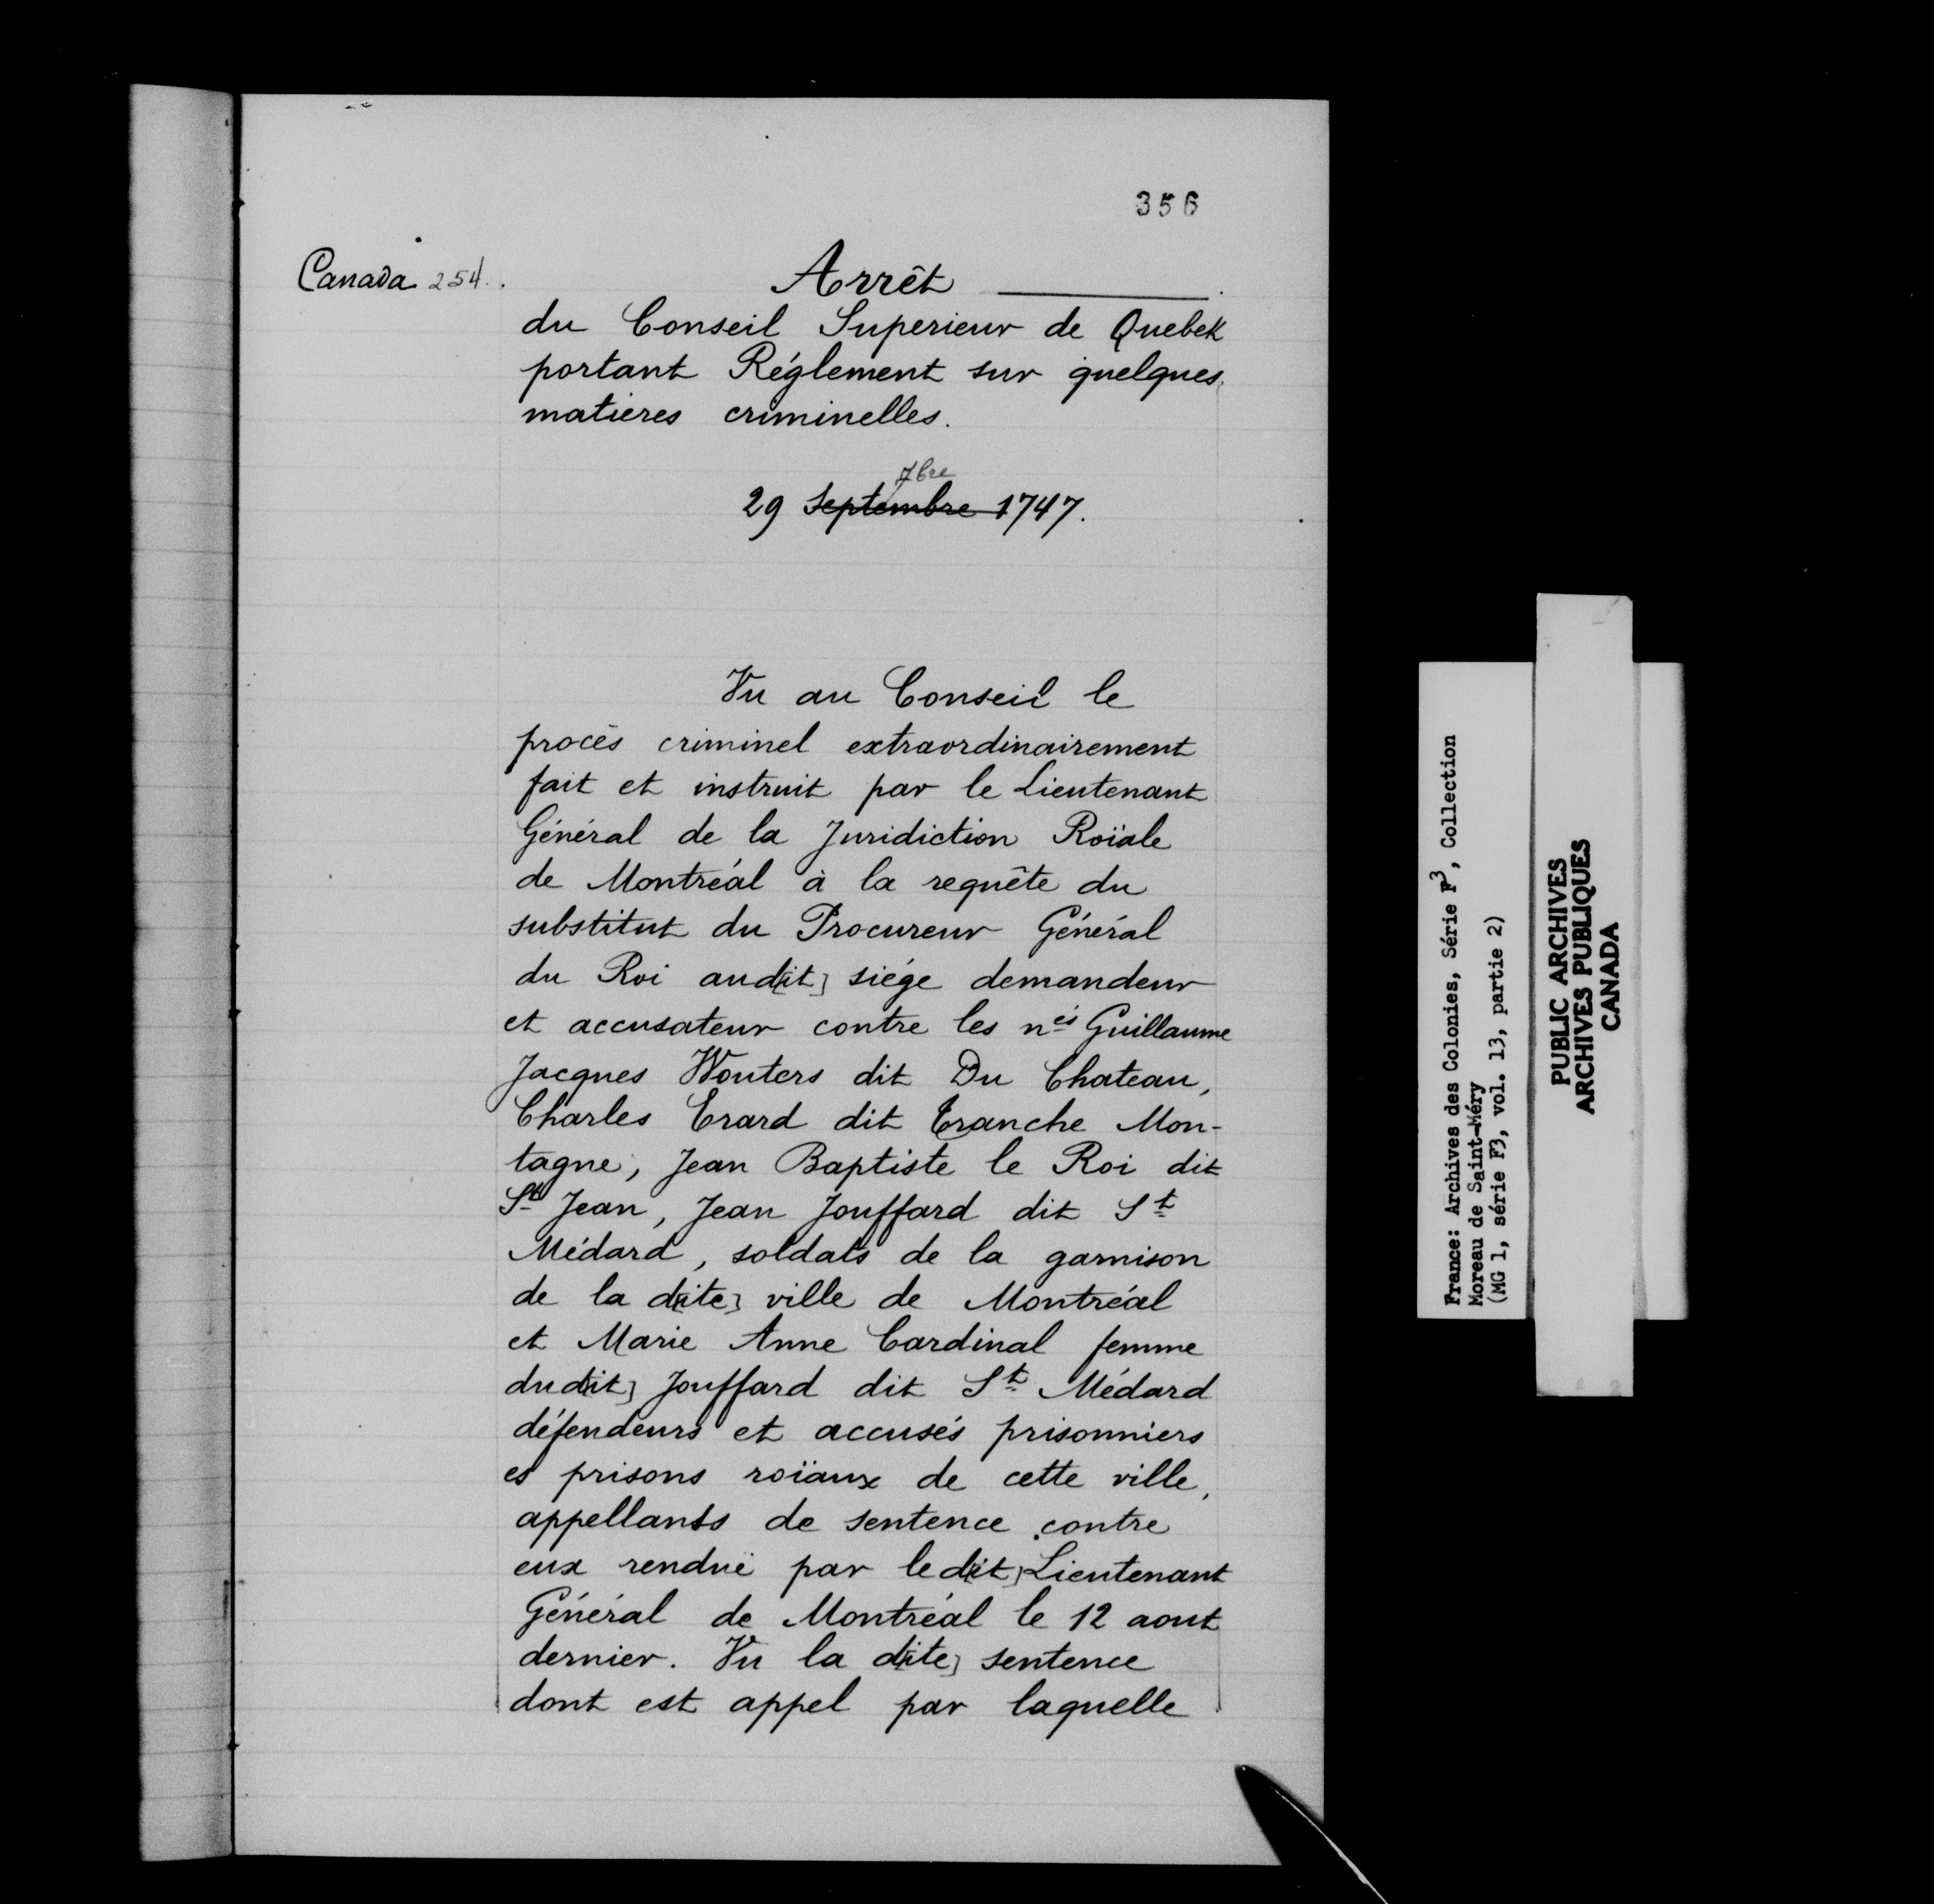 356
Canada 254.
Arrêt
du Conseil Superieur de Quebek
portant Réglement sur quelques
matieres criminelles.
7bre
29 Septembre 1747.
Vu au Conseil le
procès criminel extraordinairement
fait et instruit par le Lieutenant
Général de la Juridiction Roïale
de Montréal à la requête du
substitut du Procureur Général
du Roi aud[it] siége demandeur
et accusateur contre les nés Guillaume
Jacques Wouters dit Du Chateau,
Charles Erard dit Tranche Mon-
tagne, Jean Baptiste le Roi dit
St Jean, Jean Jouffard dit St
Médard, soldats de la garnison
de la d[ite] ville de Montréal
et Marie Anne Cardinal femme
dud[it] Jouffard dit St Médard
défendeurs et accusés prisonniers
es prisons roïaux de cette ville,
appellants de sentence contre
eux rendue par led[it] Lieutenant
Général de Montréal le 12 aout
dernier. Vu la d[ite] sentence
dont est appel par laquelle
France: Archives des Colonies, Série F3, Collection
Moreau de Saint-Méry
(MG 1, série F3, vol. 13, partie 2)
PUBLIC ARCHIVES
ARCHIVES PUBLIQUES
CANADA